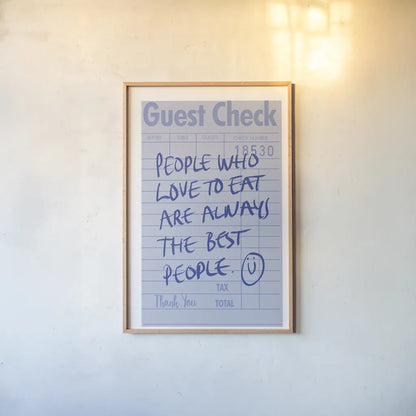 Guest Check
TABLE GUESTS CHECK NUMBER
18530
PEOPLE WHO
LOVE TO EAT
ARE ALWAYS
THE BEST
PEOPLE.
TAX
Thank You TOTAL